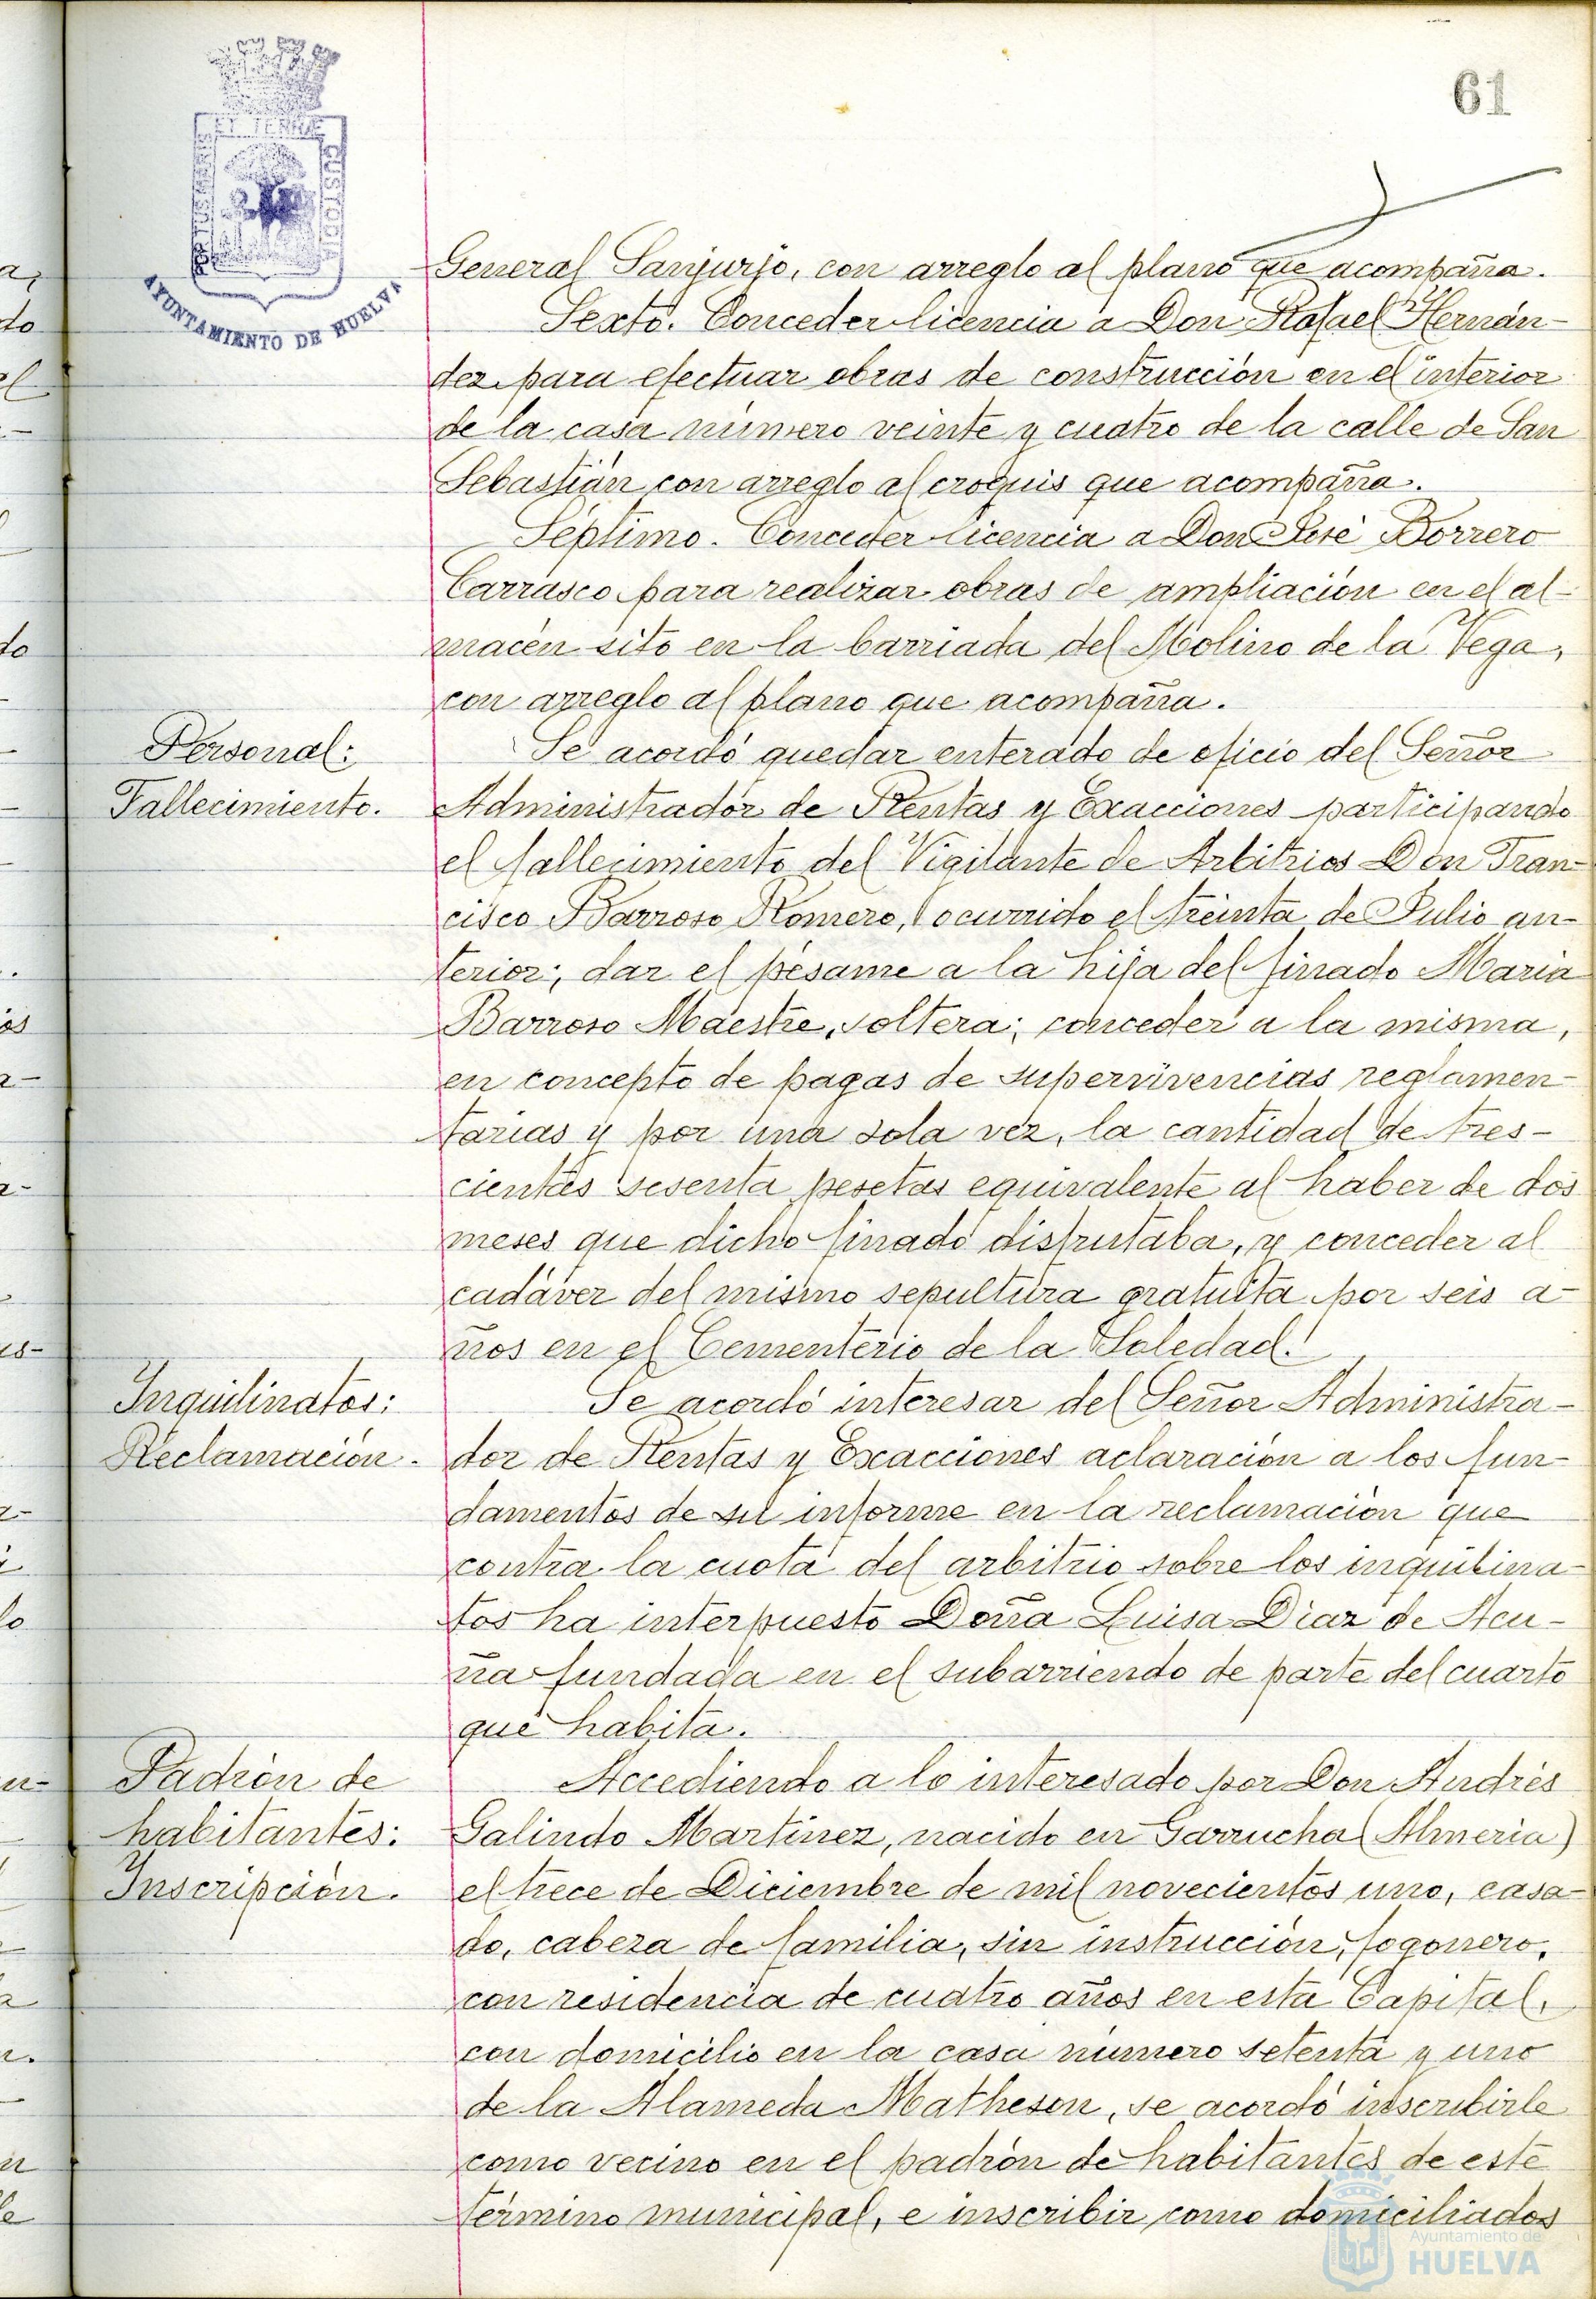 61
PORTUS MARIS
ET TERRÆ
CUSTODIA
AYUNTAMIENTO DE HUELVA
General Sanjurjo, con arreglo al plano que acompaña.
Sexto. Conceder licencia a Don Rafael Hernán-
dez para efectuar obras de construcción en el interior
de la casa número veinte y cuatro de la calle de San
Sebastián con arreglo al croquis que acompaña.
Séptimo. Conceder licencia a Don José Borrero
Carrasco para realizar obras de ampliación en el al-
macén sito en la barriada del Molino de la Vega,
con arreglo al plano que acompaña.
Personal:
Fallecimiento.
Se acordó quedar enterado de oficio del Señor
Administrador de Rentas y Exacciones participando
el fallecimiento del Vigilante de Arbitrios Don Fran-
cisco Barroso Romero, ocurrido el treinta de Julio an-
terior; dar el pésame a la hija del finado Maria
Barroso Maestre, soltera; conceder a la misma,
en concepto de pagas de supervivencias reglamen-
tarias y por una sola vez, la cantidad de tres-
cientas sesenta pesetas equivalente al haber de dos
meses que dicho finado disfrutaba, y conceder al
cadáver del mismo sepultura gratuita por seis a-
ños en el Cementerio de la Soledad.
Inquilinatos:
Reclamación.
Se acordó interesar del Señor Administra-
dor de Rentas y Exacciones aclaración a los fun-
damentos de su informe en la reclamación que
contra la cuota del arbitrio sobre los inquilina-
tos ha interpuesto Doña Luisa Diaz de Acu-
ña fundada en el subarriendo de parte del cuarto
que habita.
Padrón de
habitantes:
Inscripción.
Accediendo a lo interesado por Don Andrés
Galindo Martínez, nacido en Garrucha (Almeria)
el trece de Diciembre de mil novecientos uno, casa-
do, cabeza de familia, sin instrucción, fogonero,
con residencia de cuatro años en esta Capital,
con domicilio en la casa número setenta y uno
de la Alameda Matheson, se acordó inscribirle
como vecino en el padrón de habitantes de este
término municipal, e inscribir como domiciliados
Ayuntamiento de
HUELVA